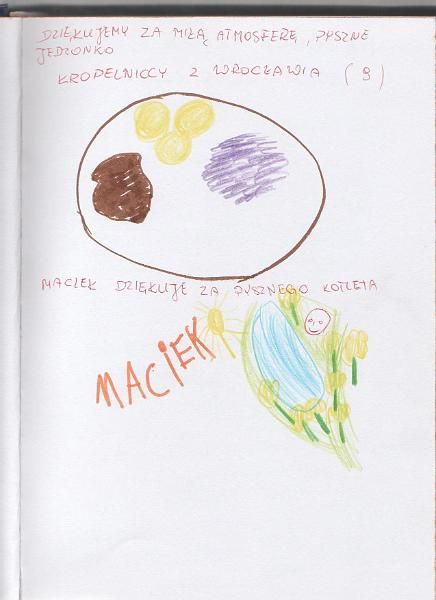 DZIĘKUJEMY ZA MIŁĄ ATMOSFERĘ, PYSZNE
JEDZONKO
KROPELNICCY Z WROCŁAWIA (9)
MACIEK DZIĘKUJE ZA PYSZNEGO KOTLETA
MACIEK